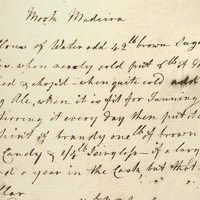 Mock Madeira
of Water add 42 lb brown Suga
when nearly cold put 6 lb of
& chop'd - when quite cold add
Ale, when it is fit for Tunning
stirring it every day then put it
pint of brandy one lb of brown
Candy & 1/4 lb Isinglass - if a larg
a year in the Cask but that